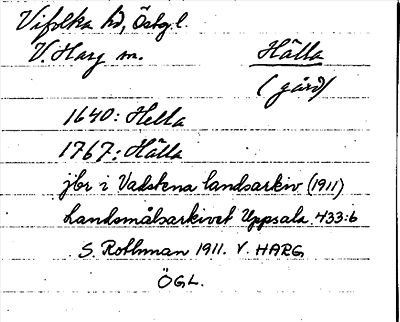 Vifolka hd, Östg.l.
V. Harg sn. Hälla
(gård)
1640: Hella
1767: Hälla
jbr i Vadstena landsarkiv (1911)
Landsmålsarkivet Uppsala 433:6
S. Rothman 1911. V. HARG
ÖGL.